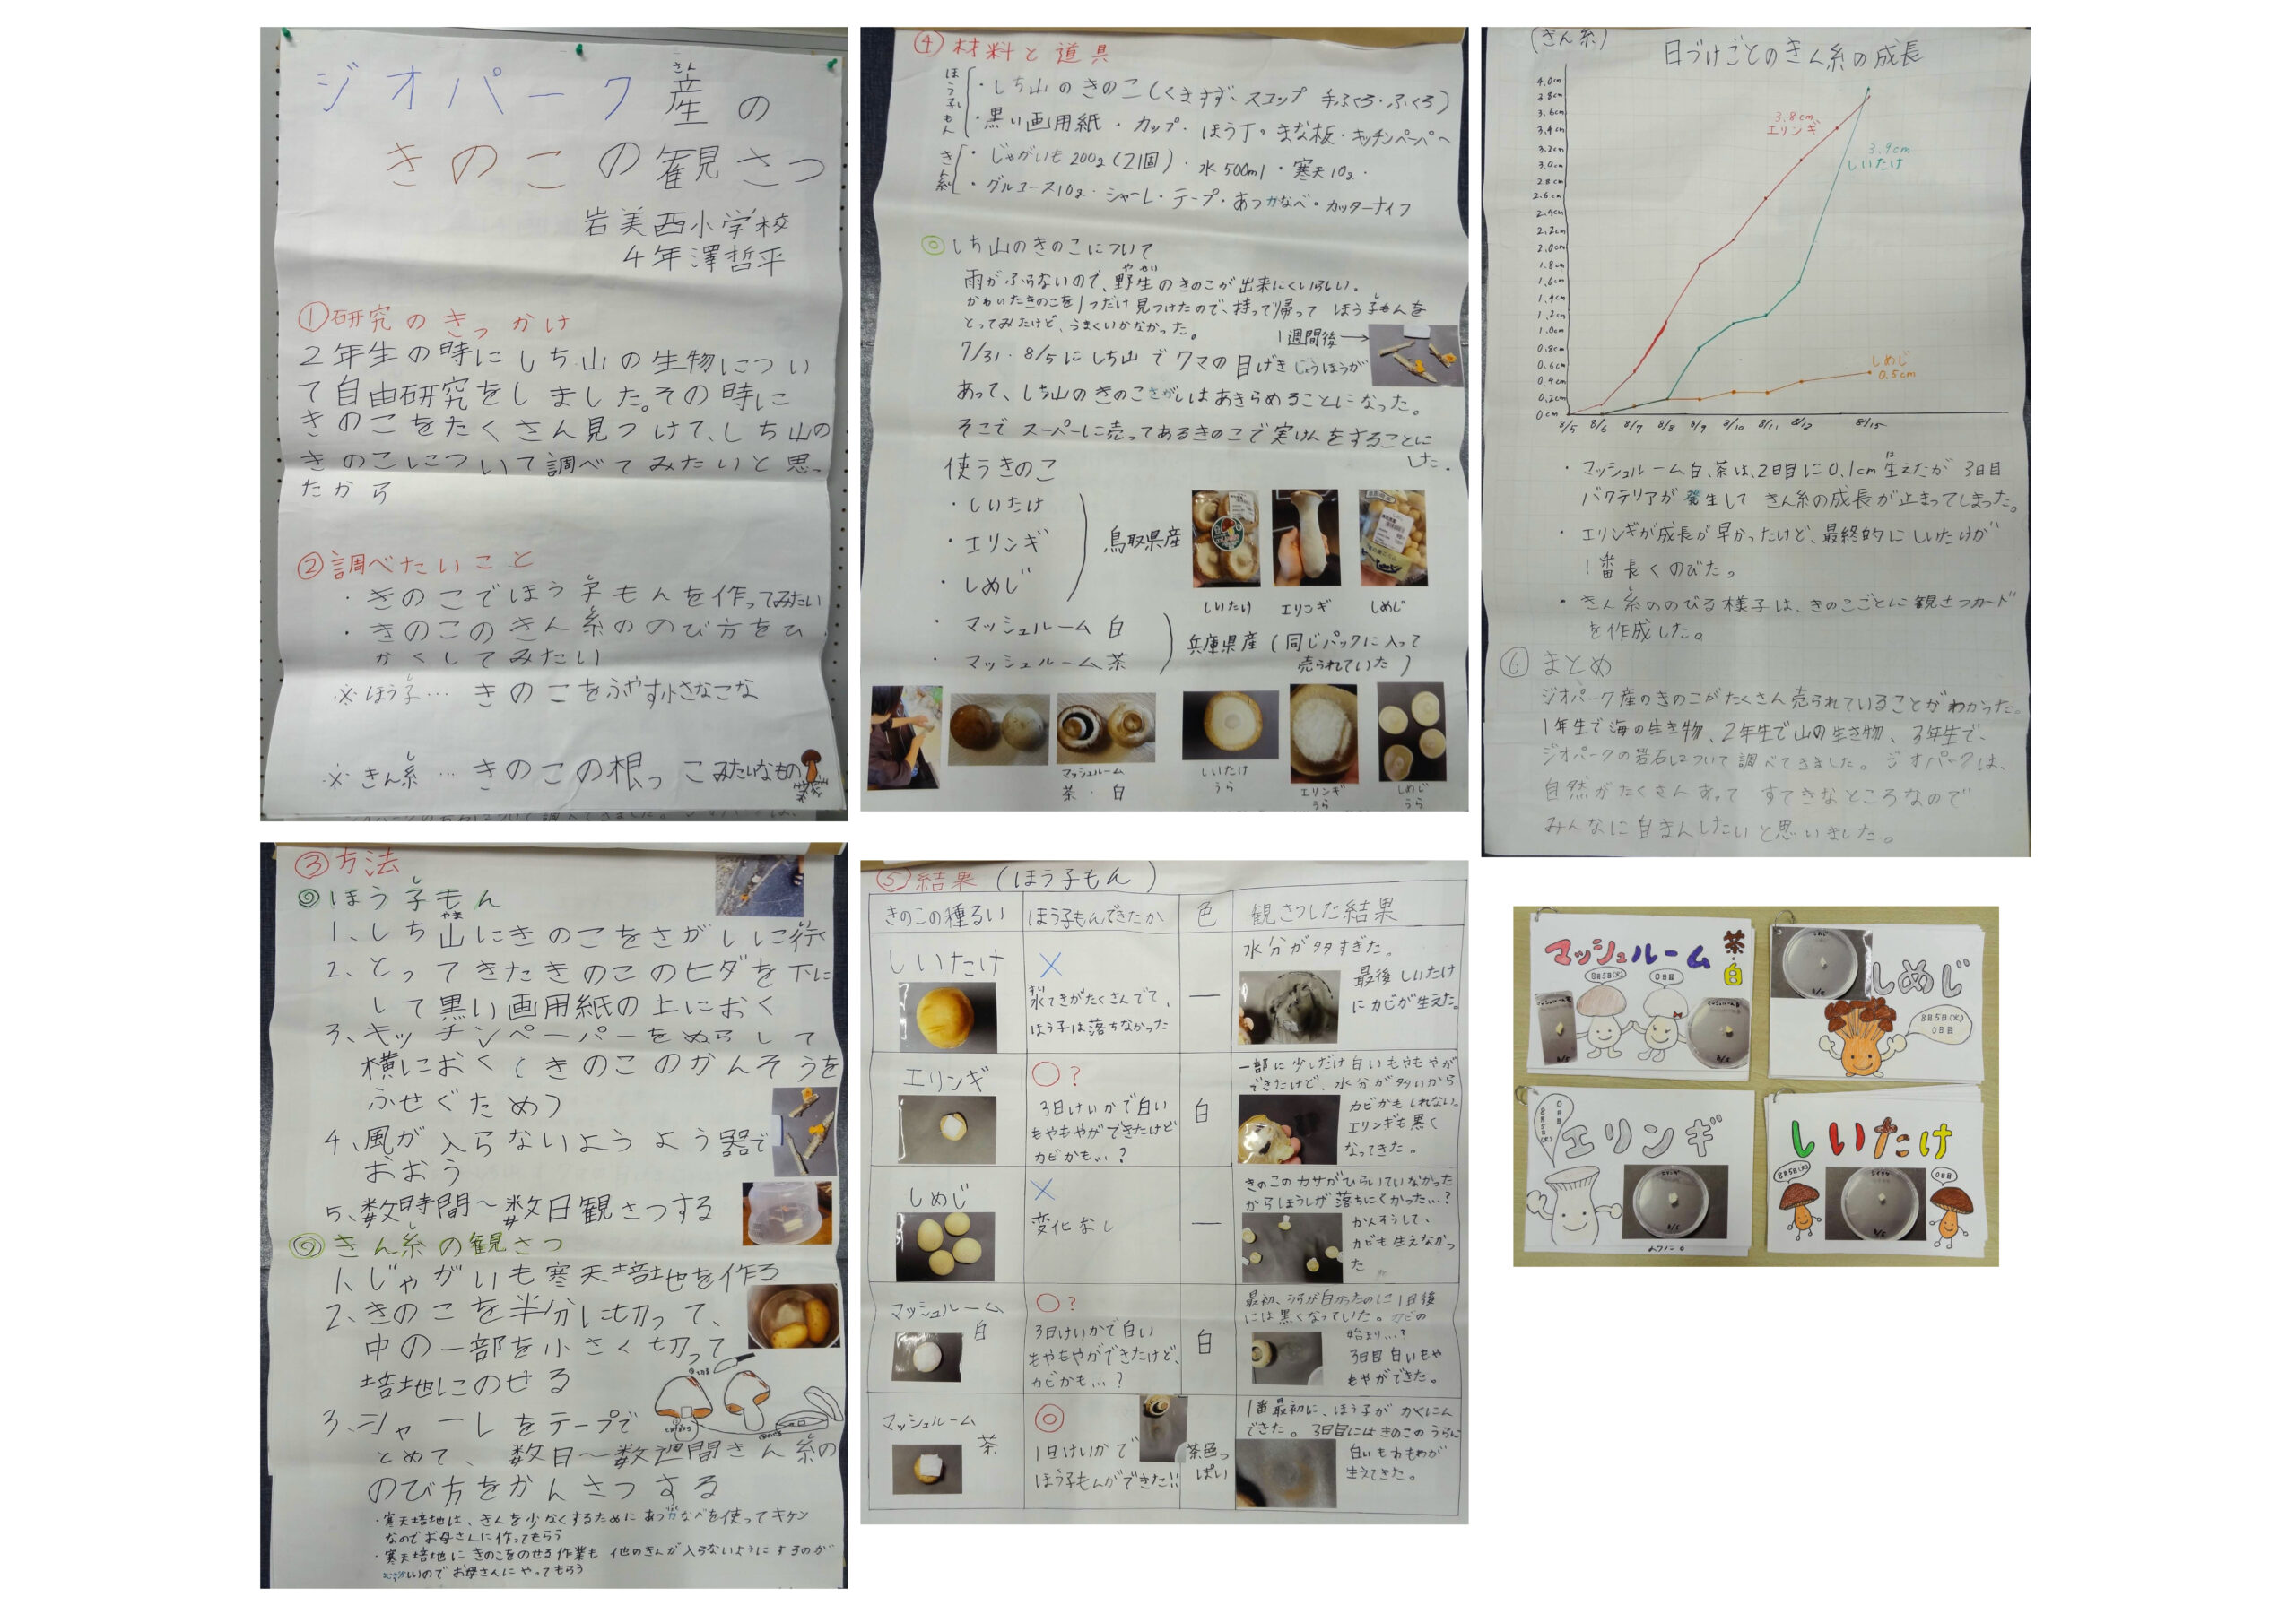 ジオパーク産の
さん
きのこの観さつ
岩美西小学校
4年澤哲平
①研究のきっかけ
2年生の時にしち山の生物につい
て自由研究をしました。その時に
きのこをたくさん見つけて、しち山の
きのこについて調べてみたいと思っ
たから
②調べたいこと
・きのこでほう子もんを作ってみたい
・きのこのきん糸ののび方をひ
かくしてみたい
※ほう子…きのこをふやす小さなこな
※きん糸…きのこの根っこみたいなもの
③方法
◎ほう子もん
1、しち山にきのこをさがしに行く
2、とってきたきのこのヒダを下に
して黒い画用紙の上におく
3、キッチンペーパーをぬらして
横におく(きのこのかんそうを
ふせぐため)
4、風が入らないようよう器で
おおう
5、数時間〜数日観さつする
◎きん糸の観さつ
1、じゃがいも寒天培地を作る
2、きのこを半分に切って、
中の一部を小さく切って
培地にのせる
3、シャーレをテープで
とめて、数日〜数週間きん糸の
のび方をかんさつする
・寒天培地は、きんを少なくするためにあつかなべを使ってキケン
なのでお母さんに作ってもらう
・寒天培地にきのこをのせる作業も他のきんが入らないようにするのが
むずかしいのでお母さんにやってもらう
④材料と道具
ほう子もん
・しち山のきのこ(くますず、スコップ 手ぶくろ・ふくろ)
・黒い画用紙・カップ・ほう丁・まな板・キッチンペーパー
きん糸
・じゃがいも200g(2個)・水500ml・寒天10g・
・グルコース10g・シャーレ・テープ・あつかなべ・カッターナイフ
◎しち山のきのこについて
雨がふらないので、野生のきのこが出来にくいらしい。
かわいたきのこを1つだけ見つけたので、持って帰ってほう子もんを
とってみたけど、うまくいかなかった。
1週間後→
7/31・8/5にしち山でクマの目げきじょうほうが
あって、しち山のきのこさがしはあきらめることになった。
そこでスーパーに売ってあるきのこで実けんをすることに
した。
使うきのこ
・しいたけ
・エリンギ
・しめじ
鳥取県産
しいたけ エリンギ しめじ
・マッシュルーム 白
・マッシュルーム 茶
兵庫県産(同じパックに入って
売られていた)
マッシュルーム
茶・白
しいたけ
うら
エリンギ
うら
しめじ
うら
⑤結果(ほう子もん)
きのこの種るい ほう子もんできたか 色 観さつした結果
しいたけ
×
水てきがたくさんでて、
ほう子は落ちなかった
―
水分が多すぎた。
最後しいたけ
にカビが生えた。
エリンギ
○?
3日けいかで白い
もやもやができたけど
カビかも…?
白
一部に少しだけ白いもやもやが
できたけど、水分が多いから
カビかもしれない。
エリンギも黒く
なってきた。
しめじ
×
変化なし
―
きのこのカサがひらいていなかった
からほうしが落ちにくかった…?
かんそうして、
カビも生えなかっ
た
マッシュルーム
白
○?
3日けいかで白い
もやもやができたけど、
カビかも…?
白
最初、うらが白かったのに1日後
には黒くなっていた。カビの
始まり…?
3日目白いもや
もやができた。
マッシュルーム
茶
◎
1日けいかで
ほう子もんができた!!
茶色っ
ぽい
1番最初に、ほう子がかくにん
できた。3日目にはきのこのうらに
白いもわもわが
生えてきた。
(きん糸)
日づけごとのきん糸の成長
4.0cm
3.8cm
3.6cm
3.4cm
3.2cm
3.0cm
2.8cm
2.6cm
2.4cm
2.2cm
2.0cm
1.8cm
1.6cm
1.4cm
1.2cm
1.0cm
0.8cm
0.6cm
0.4cm
0.2cm
0cm
8/5 8/6 8/7 8/8 8/9 8/10 8/11 8/12 8/15
3.8cm
エリンギ
3.9cm
しいたけ
しめじ
0.5cm
・マッシュルーム白、茶は、2日目に0.1cm生えたが3日目
バクテリアが発生してきん糸の成長が止まってしまった。
・エリンギが成長が早かったけど、最終的にしいたけが
1番長くのびた。
・きん糸ののびる様子は、きのこごとに観さつカード
を作成した。
⑥まとめ
ジオパーク産のきのこがたくさん売られていることがわかった。
1年生で海の生き物、2年生で山の生き物、3年生で、
ジオパークの岩石について調べてきました。ジオパークは、
自然がたくさんあって すてきなところなので
みんなに自まんしたいと思いました。
マッシュルーム
茶・白
8月5日(火)
0日目
しめじ
8月5日(火)
0日目
エリンギ
0日目
8月5日(火)
しいたけ
8月5日(火)
0日目